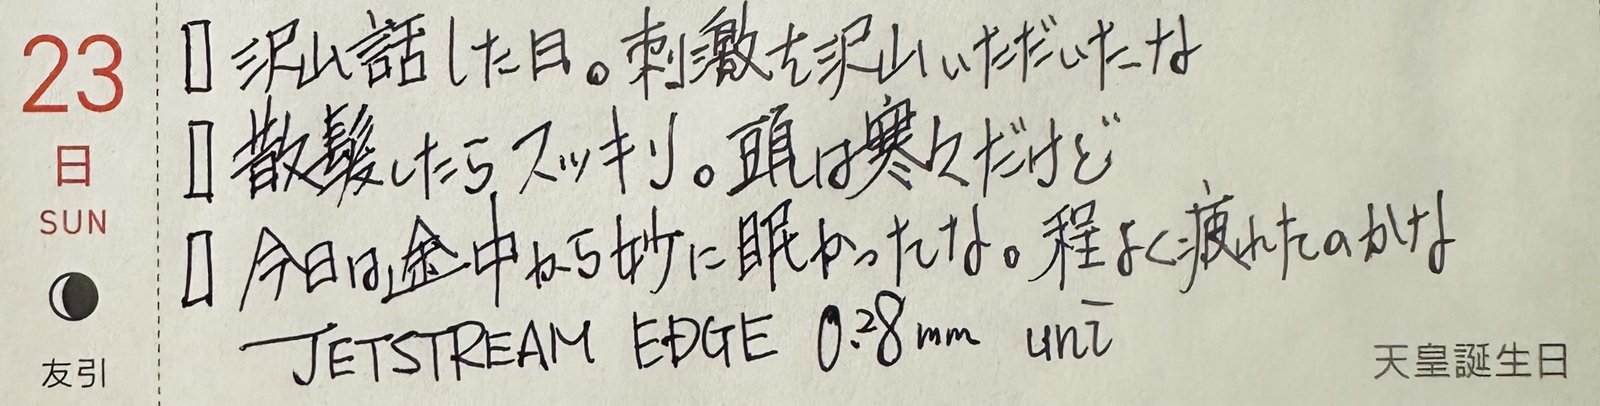 23
日
SUN
友引
沢山話した日。刺激を沢山いただいたな
散髪したらスッキリ。頭は寒々だけど
今日は途中から妙に眠かったな。程よく疲れたのかな
JETSTREAM EDGE 0.28mm uni
天皇誕生日